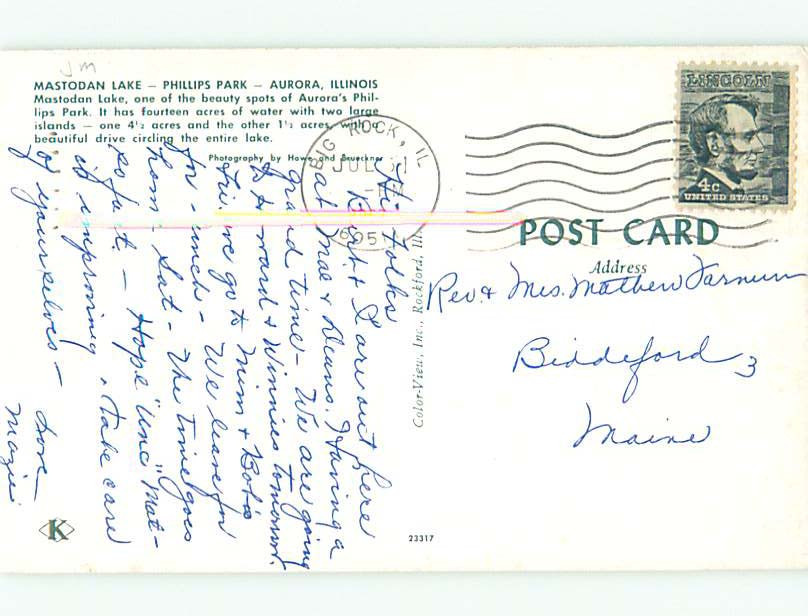 JM
MASTODAN LAKE — PHILLIPS PARK — AURORA, ILLINOIS
Mastodan Lake, one of the beauty spots of Aurora's Phil-
lips Park. It has fourteen acres of water with two large
islands — one 4½ acres and the other 1½ acres, with a
beautiful drive circling the entire lake.
Photography by Howe and Brueckner
BIG ROCK, IL
JUL
PM
60511
LINCOLN
4c
UNITED STATES
POST CARD
Address
Rev. & Mrs. Mathew Farnum
Biddeford
Maine
Color-View, Inc., Rockford, Ill.
Hi Folks
& I are out here
at Mae & Deans. Having a
grand time - We are going
to & Winnies tomorrow.
Fri. we go to Mim & Bob's
for lunch - We leave for
home Sat - The time goes
so fast. - Hope "Unc" Mat -
is improving. Take care
of yourselves -
Love
Mazie
K
23317